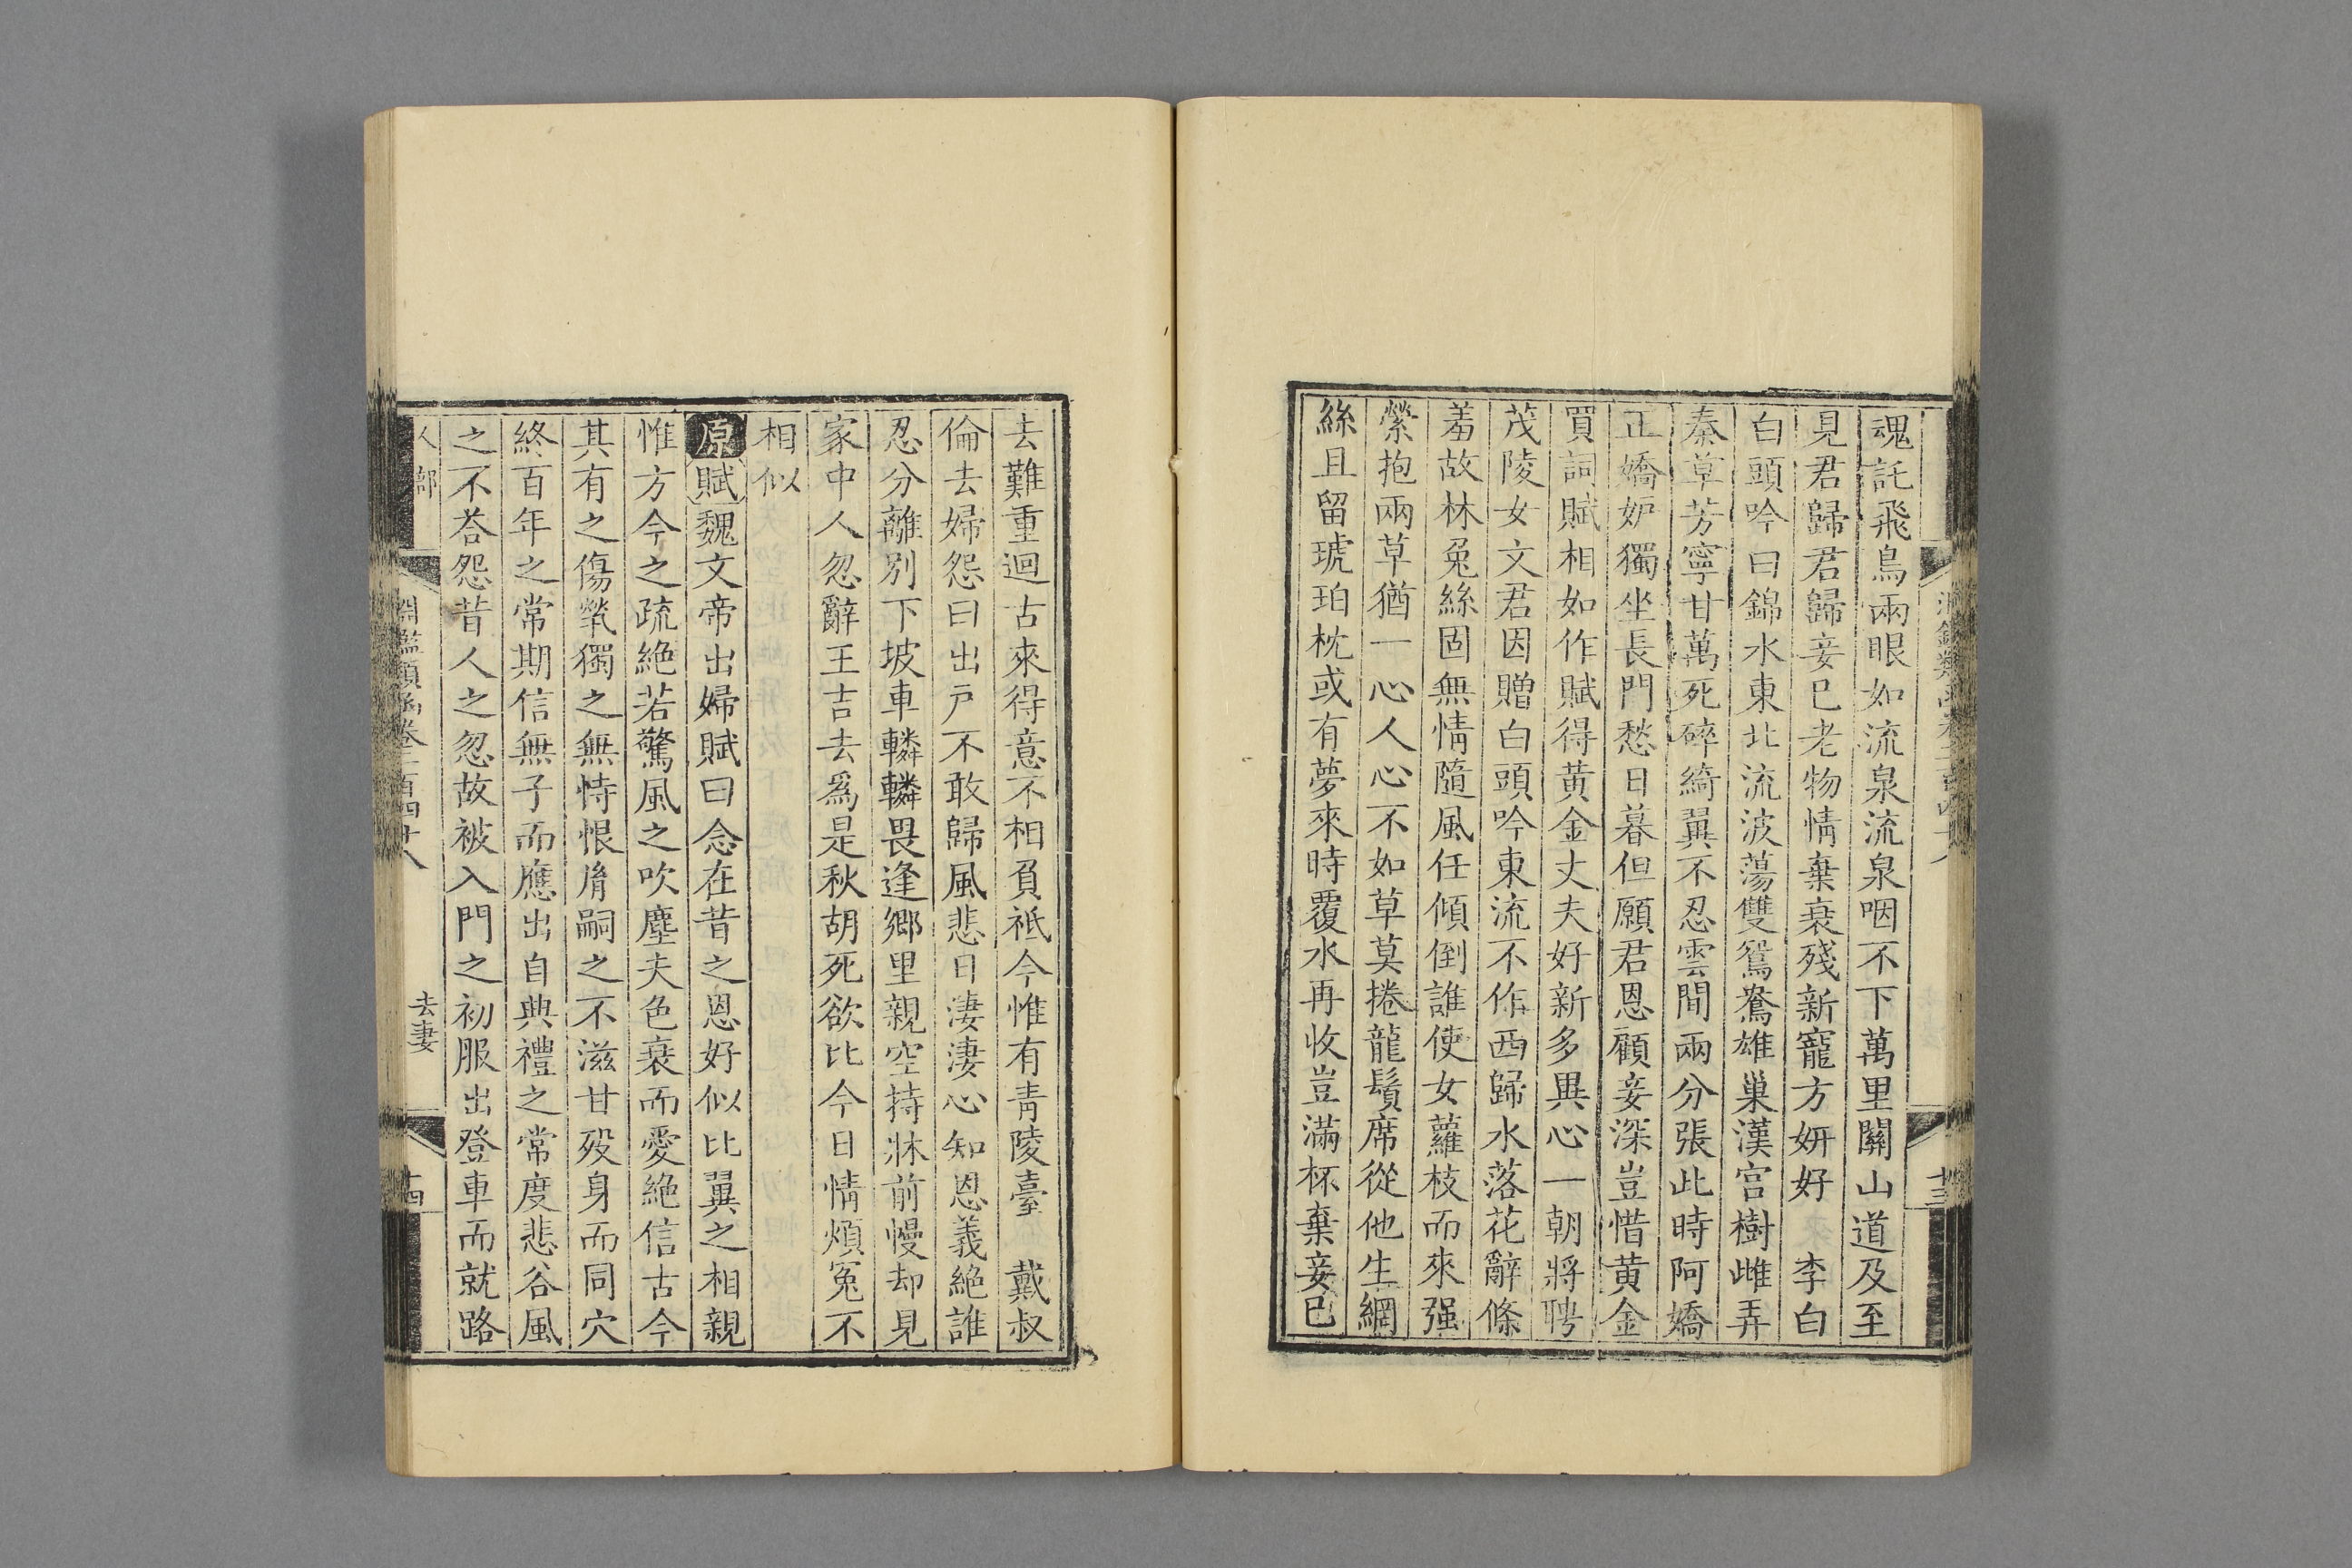 魂託飛鳥兩眼如流泉流泉咽不下萬里關山道及至
見君歸君歸妾已老物情棄衰殘新寵方妍好 李白
白頭吟曰錦水東北流波蕩雙鴛鴦雄巢漢宫樹雌弄
秦草芳寧甘萬死碎綺翼不忍雲間兩分張此時阿嬌
正嬌妒獨坐長門愁日暮但願君恩顧妾深豈惜黄金
買詞賦相如作賦得黄金丈夫好新多異心一朝將聘
茂陵女文君因贈白頭吟東流不作西歸水落花辭條
羞故林兔絲固無情隨風任傾倒誰使女蘿枝而來强
縈抱兩草猶一心人心不如草莫捲龍鬚席從他生網
絲且留琥珀枕或有夢來時覆水再收豈滿杯棄妾已
去難重迴古來得意不相負祗今惟有青陵臺 戴叔
倫去婦怨曰出戸不敢歸風悲日淒淒心知恩義絕誰
忍分離别下坡車轔轔畏逢鄉里親空持牀前幔却見
家中人忽辭王吉去爲是秋胡死欲比今日情煩冤不
相似
原賦魏文帝出婦賦曰念在昔之恩好似比翼之相親
惟方今之疏絶若驚風之吹塵夫色衰而愛絶信古今
其有之傷煢獨之無恃恨胤嗣之不滋甘殁身而同穴
終百年之常期信無子而應出自典禮之常度悲谷風
之不荅怨昔人之忽故被入門之初服出登車而就路
人部
淵鑑類函卷二百四十八
去妻
十四